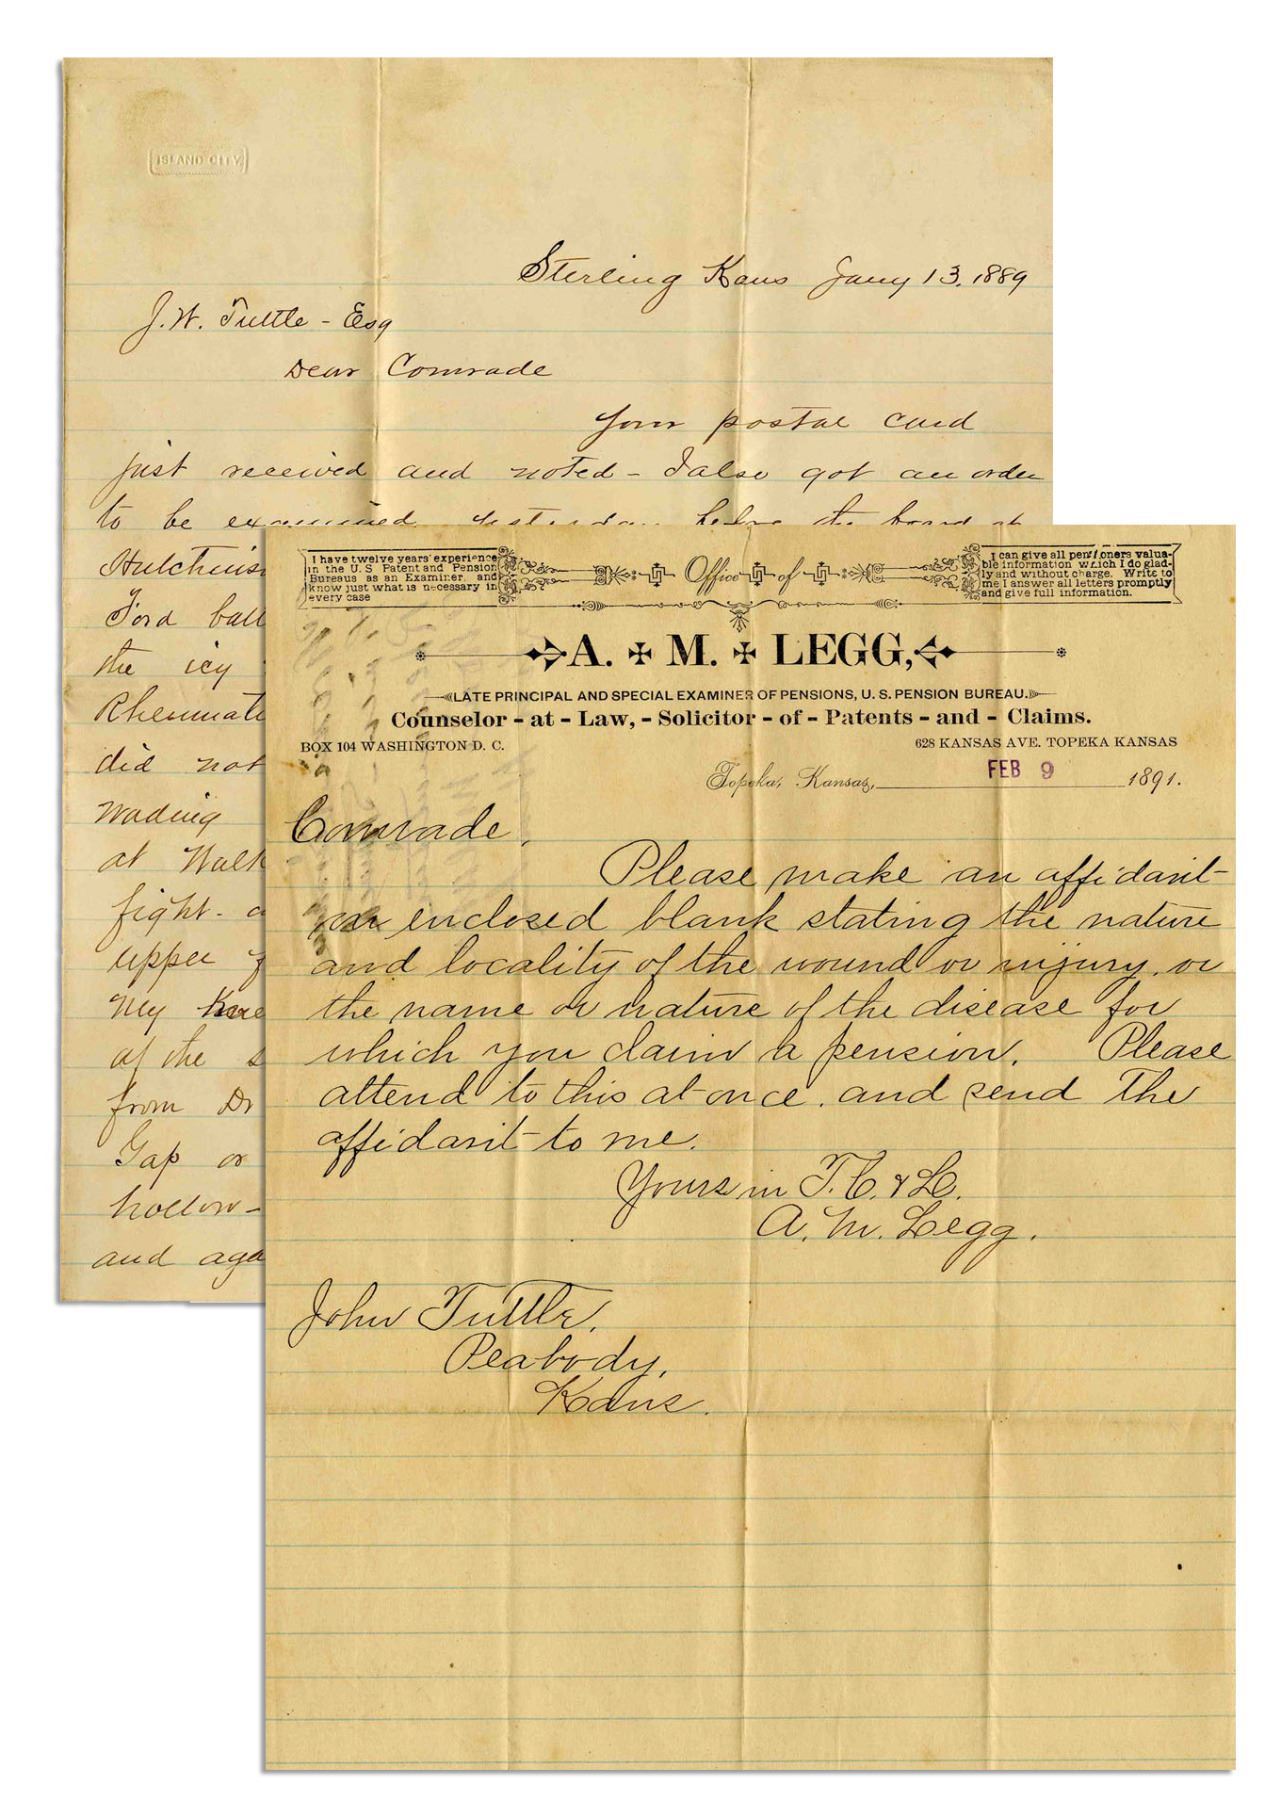 ISLAND CITY
Sterling Kans Jany 13, 1889
J. W. Tuttle - Esq
Dear Comrade
Your postal card
just received and noted - I also got an order
to be examined yesterday before the board at
Hutchins
Ford
the icy
Rheumati
did not
wading
at Walk
fight -
upper
My
at the s
from Dr
Gap or
hollow -
and aga
I have twelve years' experience
in the U.S Patent and Pension
Bureaus as an Examiner, and
know just what is necessary in
every case
Office of
I can give all pensioners valua-
ble information which I do glad-
ly and without charge. Write to
me I answer all letters promptly
and give full information.
A. M. LEGG,
LATE PRINCIPAL AND SPECIAL EXAMINER OF PENSIONS, U. S. PENSION BUREAU.
Counselor - at - Law, - Solicitor - of - Patents - and - Claims.
BOX 104 WASHINGTON D. C.
628 KANSAS AVE. TOPEKA KANSAS
Topeka, Kansas, FEB 9 1891.
Comrade,
Please make an affidavit
on enclosed blank stating the nature
and locality of the wound or injury, or
the name or nature of the disease for
which you claim a pension. Please
attend to this at once, and send the
affidavit to me.
Yours in F. C. & L.
A. M. Legg.
John Tuttle,
Peabody,
Kans.